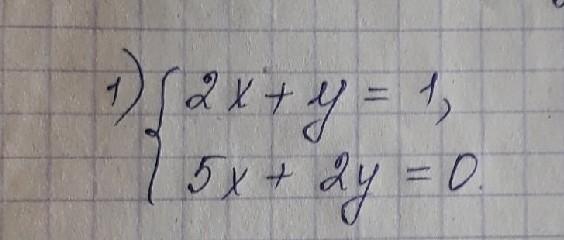 1) { 2x + y = 1,
5x + 2y = 0.